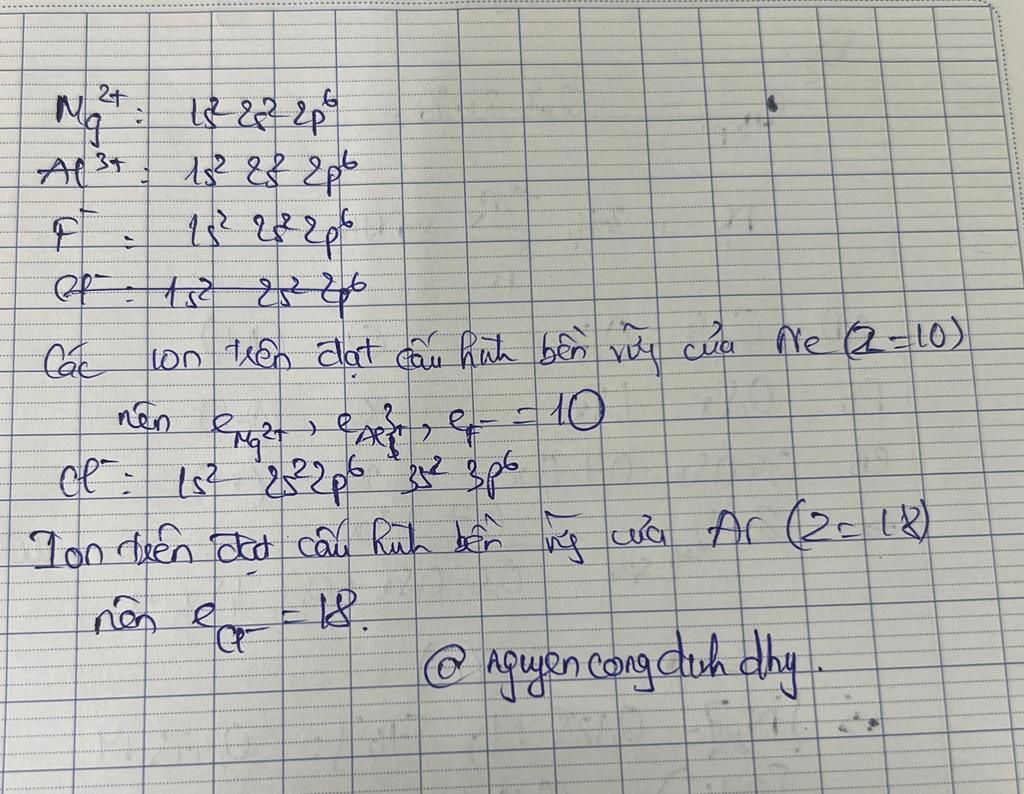 Mg²⁺: 1s² 2s² 2p⁶
Al³⁺: 1s² 2s² 2p⁶
F⁻: 1s² 2s² 2p⁶
Cl⁻: 1s² 2s² 2p⁶
Các ion trên đạt cấu hình bền vững của Ne (Z=10)
nên e Mg²⁺, e Al³⁺, e F⁻ = 10
Cl⁻: 1s² 2s² 2p⁶ 3s² 3p⁶
Ion trên đạt cấu hình bền vững của Ar (Z=18)
nên e Cl⁻ = 18.
@ nguyencongduhdhy.